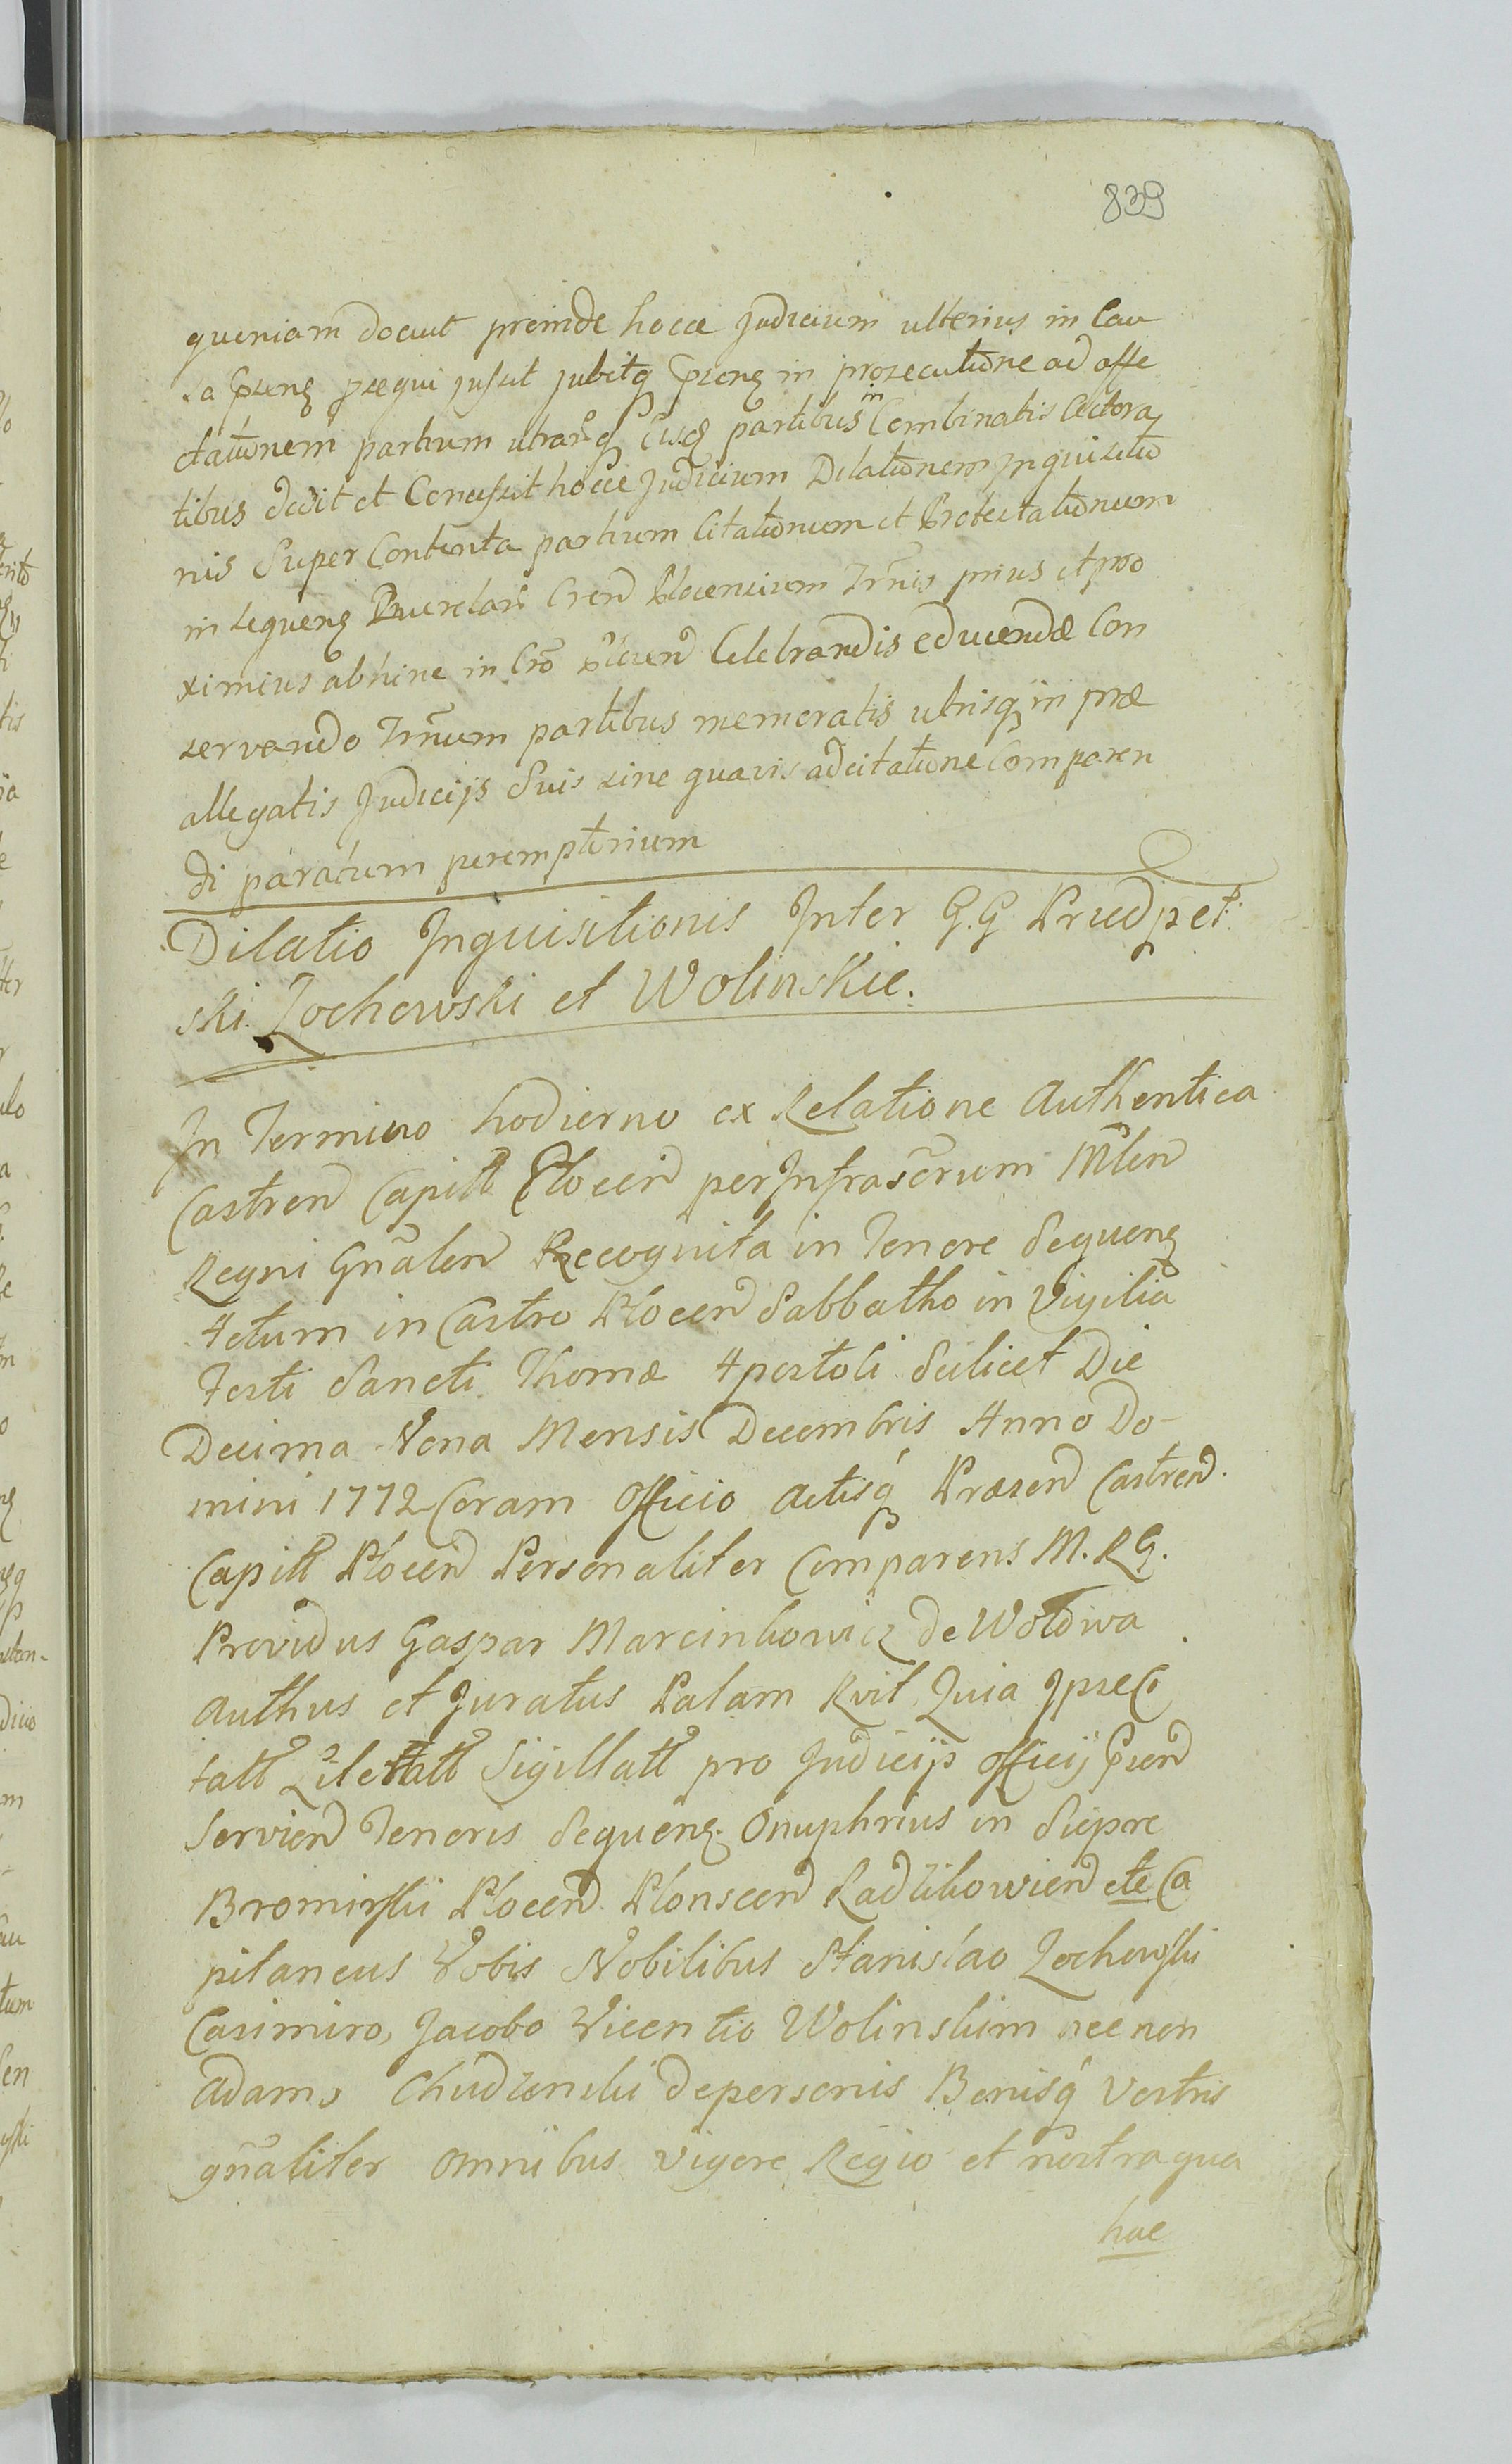 839
queniam docuit proinde hocce Judicium ulterius in Cau
sa psenz psequi jussit jubetq psenz in prosecutione ad affe
ctationem partium utrarq Eisdq partibus in Combinatis Cectora
tibus dedit et Concessit hocce Judicium Dilationem Inquisitio
nis Super Contenta partium Citationum et Protestationum
in sequenz Querelar Cren Plocensium Trnis prius et pro
ximius abhinc in Cro Plocen Celebrandis educendæ Con
servando Trnum partibus memoratis utrisq in præ
allegatis Judicijs Suis sine quavis adcitatione Comparen
di paratum peremptorium
Dilatio Inquisitionis Inter G.G Prudpet:
ski. Zochowski et Wolinskie.
In Termino hodierno ex Relatione Authentica
Castren Capitt Plocen per Infrascrum Mlen
Regni Gnalen Recognita in Tenore Sequenz
Actum in Castro Plocen Sabbatho in Vigilia
Festi Sancti Thomæ Apostoli Scilicet Die
Decima Nona Mensis Decembris Anno Do-
mini 1772 Coram Officio Actisq Præsen Castren.
Capitt Plocen Personaliter Comparens M. R G.
Providus Gaspar Marcinkowicz de Wotdwa
Authus et Juratus Palam Rvit Quia Ipse Ci
tatt Litertatt Sigillatt pro Judicijs officij Psen
Servien Tenoris Sequenz. Onuphrius in Siepre
Bromirski Plocen Plonscen Radzikowien etc Ca
pitaneus Vobis Nobilibus Stanislao Zochowski
Casimiro, Jacobo Vicentio Wolinskim necnon
Adamo Chudzinski de personis Bonisq Vestris
gnaliter omnibus vigore Regio et nostra qua
hac